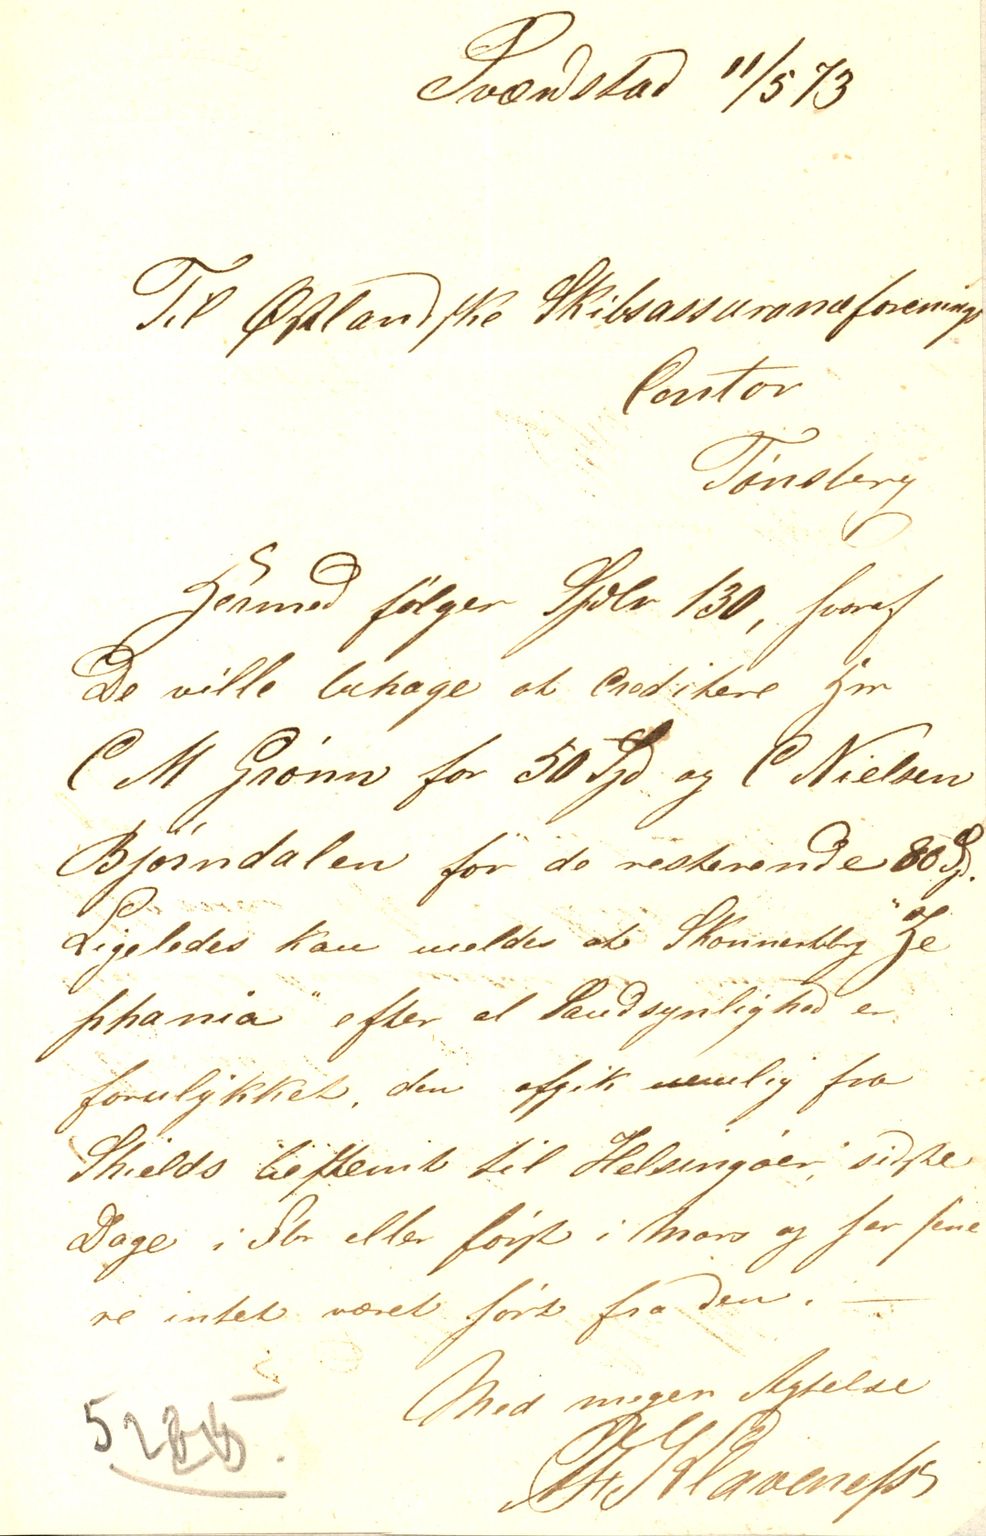 Svændstad 11/5 73
Til Østlandske Skibsassuranceforenings
Contor
Tønsberg
Hermed følger Spdlr 130, hvoraf
De ville behage at creditere Hrr
C M Grønn for 50 Spd og C Nielsen
Bjørndalen for de resterende 80 Spd.
Ligeledes kan meldes at Skonnertbrg "Ze
phania" efter al Sandsynlighed er
forulykket, den afgik nemlig fra
Shields bestemt til Helsingøer, sidste
Dage i Fbr eller først i Mars og har sene
re intet været hørt fra den. —
Med megen Agtelse
Klaveness